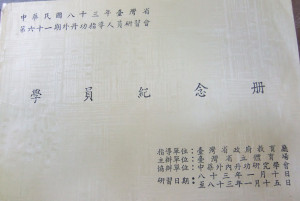 中華民國八十三年臺灣省
第六十一期外丹功指導人員研習會
學員紀念册
指導單位：臺灣省政府教育廳
主辦單位：臺灣省立體育場
協辦單位：中華外內丹研究學會
研習日期：八十三年一月十五日
至八十三年一月 日